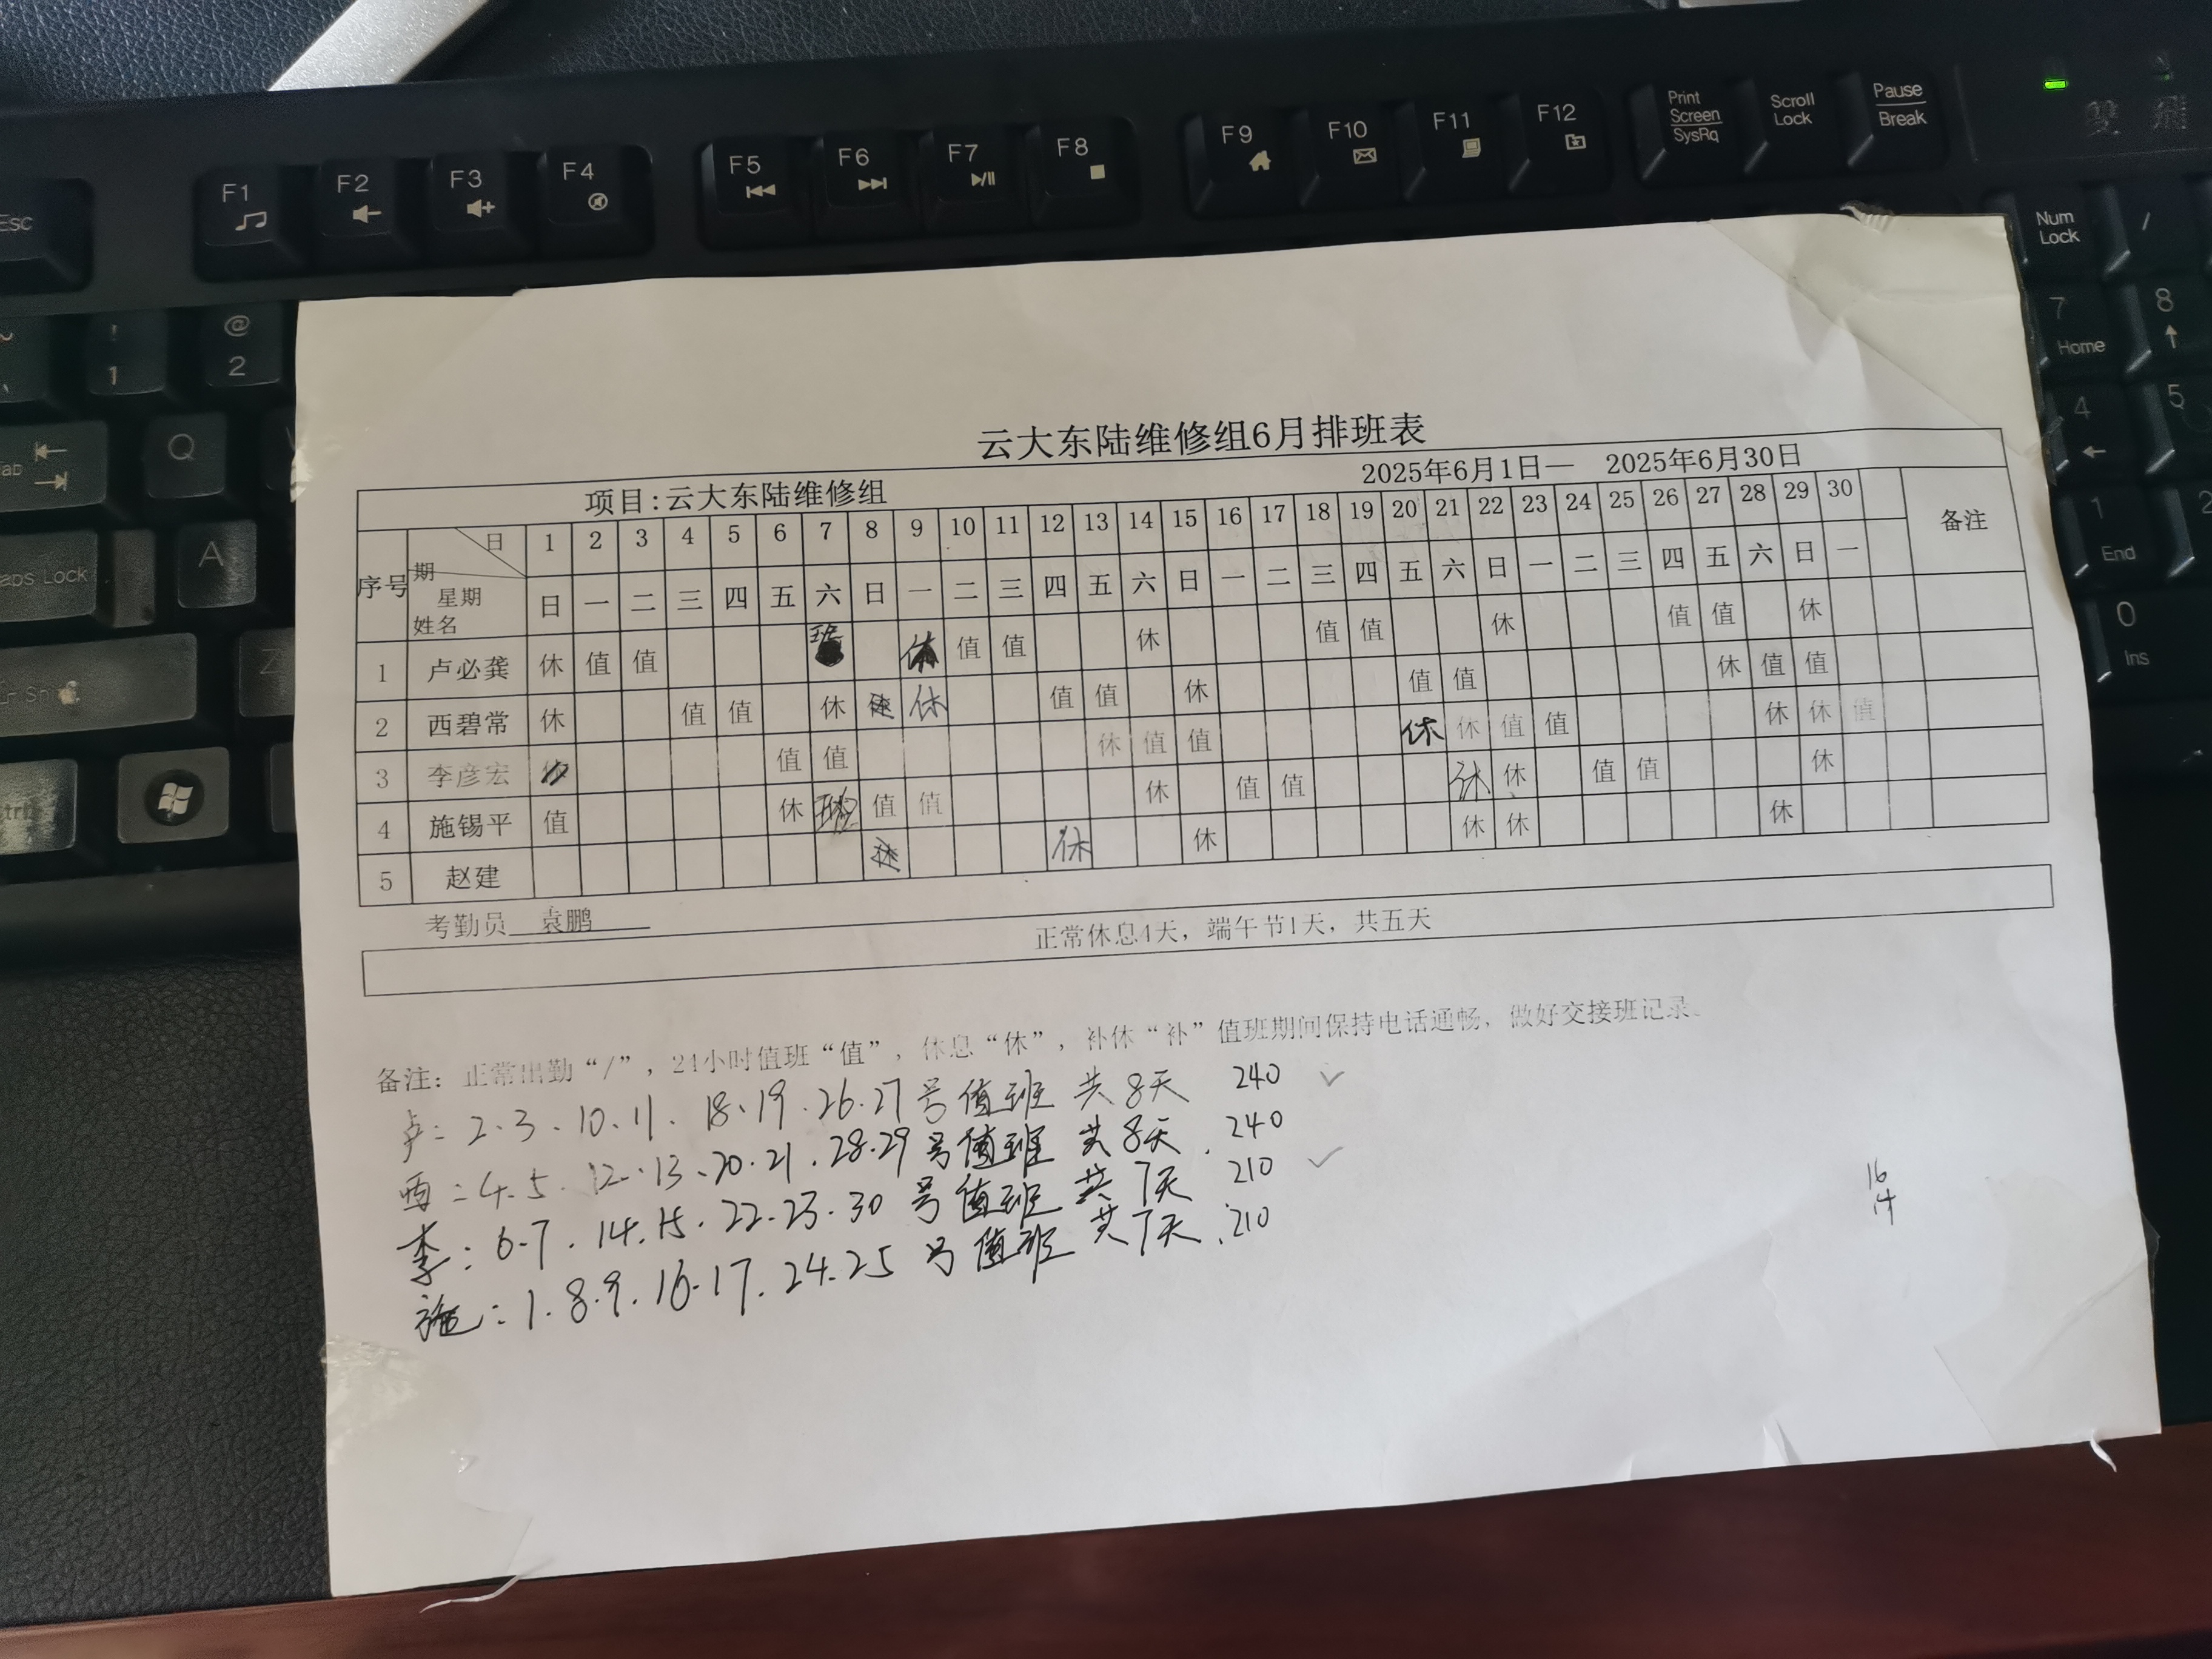 Esc F1 F2 F3 F4 F5 F6 F7 F8 F9 F10 F11 F12 Print Screen SysRq Scroll Lock Pause Break
Num Lock /
! 1 @ 2 7 Home 8
Q 4 5
Caps Lock A 1 End 2
Z 0 Ins
云大东陆维修组6月排班表
项目:云大东陆维修组 2025年6月1日— 2025年6月30日
序号 日期 星期 姓名 1 2 3 4 5 6 7 8 9 10 11 12 13 14 15 16 17 18 19 20 21 22 23 24 25 26 27 28 29 30 备注
日 一 二 三 四 五 六 日 一 二 三 四 五 六 日 一 二 三 四 五 六 日 一 二 三 四 五 六 日 一
1 卢必龚 休 值 值 休 值 值 休 值 值 休 值 值 休
2 西碧常 休 值 值 休 休 值 值 休 值 值 休 值 值
3 李彦宏 值 值 休 值 值 休 休 值 值 休 休 值
4 施锡平 值 休 值 值 休 值 值 休 休 值 值 休
5 赵建 休 休 休 休 休 休
考勤员 袁鹏
正常休息4天，端午节1天，共五天
备注：正常出勤“/”，24小时值班“值”，休息“休”，补休“补”值班期间保持电话通畅，做好交接班记录。
卢：2、3、10、11、18、19、26、27号值班 共8天 240 ✓
西：4、5、12、13、20、21、28、29号值班 共8天. 240
李：6、7、14、15、22、23、30号值班 共7天 210 ✓
施：1、8、9、16、17、24、25号值班 共7天. 210
16
14